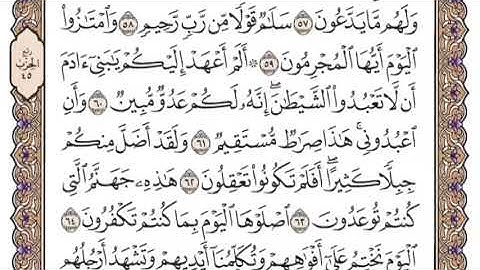 وَلَهُم مَّا يَدَّعُونَ ٥٧ سَلَٰمٌ قَوْلًا مِّن رَّبٍّ رَّحِيمٍ ٥٨ وَٱمْتَٰزُوا۟
ٱلْيَوْمَ أَيُّهَا ٱلْمُجْرِمُونَ ٥٩ ۞ أَلَمْ أَعْهَدْ إِلَيْكُمْ يَٰبَنِىٓ ءَادَمَ
أَن لَّا تَعْبُدُوا۟ ٱلشَّيْطَٰنَ ۖ إِنَّهُۥ لَكُمْ عَدُوٌّ مُّبِينٌ ٦٠ وَأَنِ
ٱعْبُدُونِى ۚ هَٰذَا صِرَٰطٌ مُّسْتَقِيمٌ ٦١ وَلَقَدْ أَضَلَّ مِنكُمْ
جِبِلًّا كَثِيرًا ۖ أَفَلَمْ تَكُونُوا۟ تَعْقِلُونَ ٦٢ هَٰذِهِۦ جَهَنَّمُ ٱلَّتِى
كُنتُمْ تُوعَدُونَ ٦٣ ٱصْلَوْهَا ٱلْيَوْمَ بِمَا كُنتُمْ تَكْفُرُونَ ٦٤
ٱلْيَوْمَ نَخْتِمُ عَلَىٰٓ أَفْوَٰهِهِمْ وَتُكَلِّمُنَآ أَيْدِيهِمْ وَتَشْهَدُ أَرْجُلُهُم
ربع
الحزب
٤٥